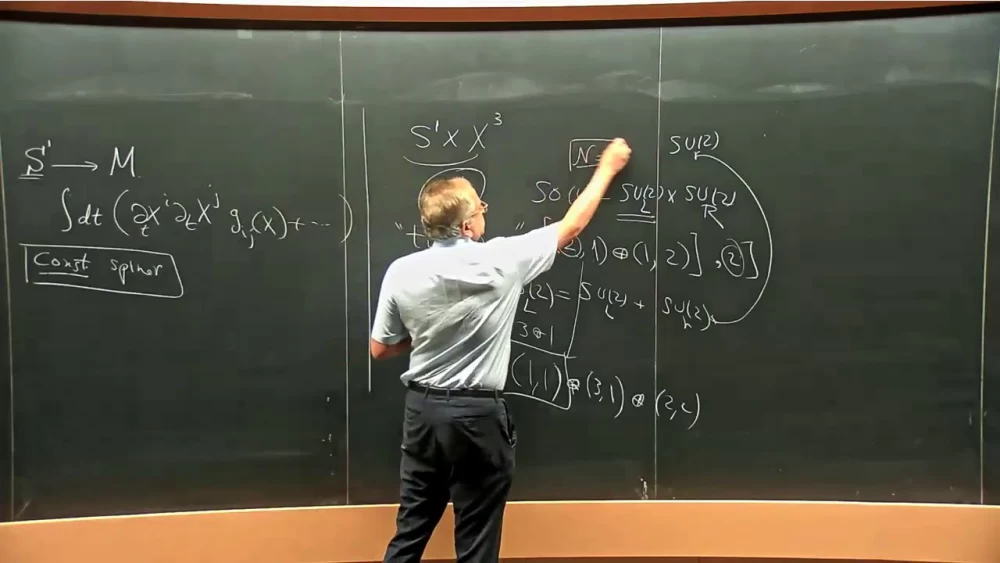 S¹ → M
∫dt (∂ₜXⁱ ∂ₜXʲ gᵢⱼ(X) + ⋯ )
Const spinor
S¹ × X³
N =
SU(2)
SO( SU(2)_L × SU(2)_R
, 1) ⊕ (1, 2)] , 2]
(2)_L = SU(2)_L + SU(2)_R
3 ⊕ 1
(1,1) ⊕ (3,1) ⊕ (2,2)